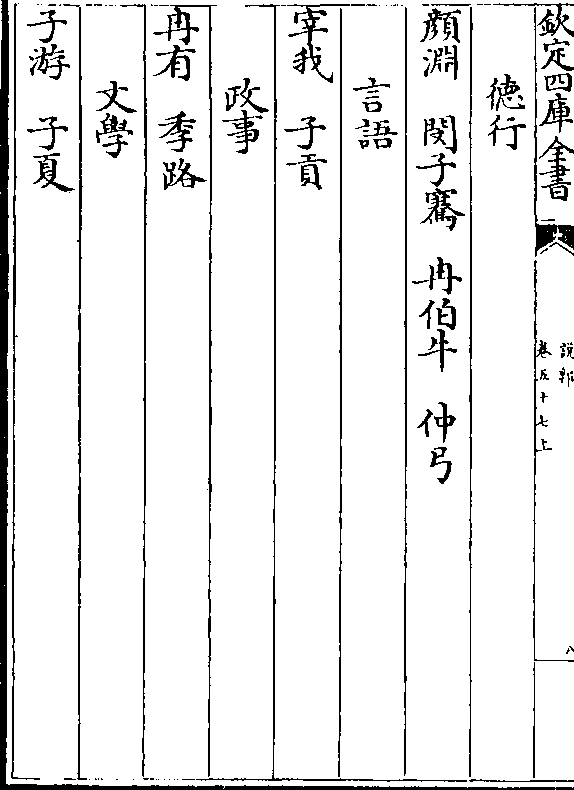 欽定四庫全書
說郛
卷五十七上
八
德行
顏淵 閔子騫 冉伯牛 仲弓
言語
宰我 子貢
政事
冉有 季路
文學
子游 子夏